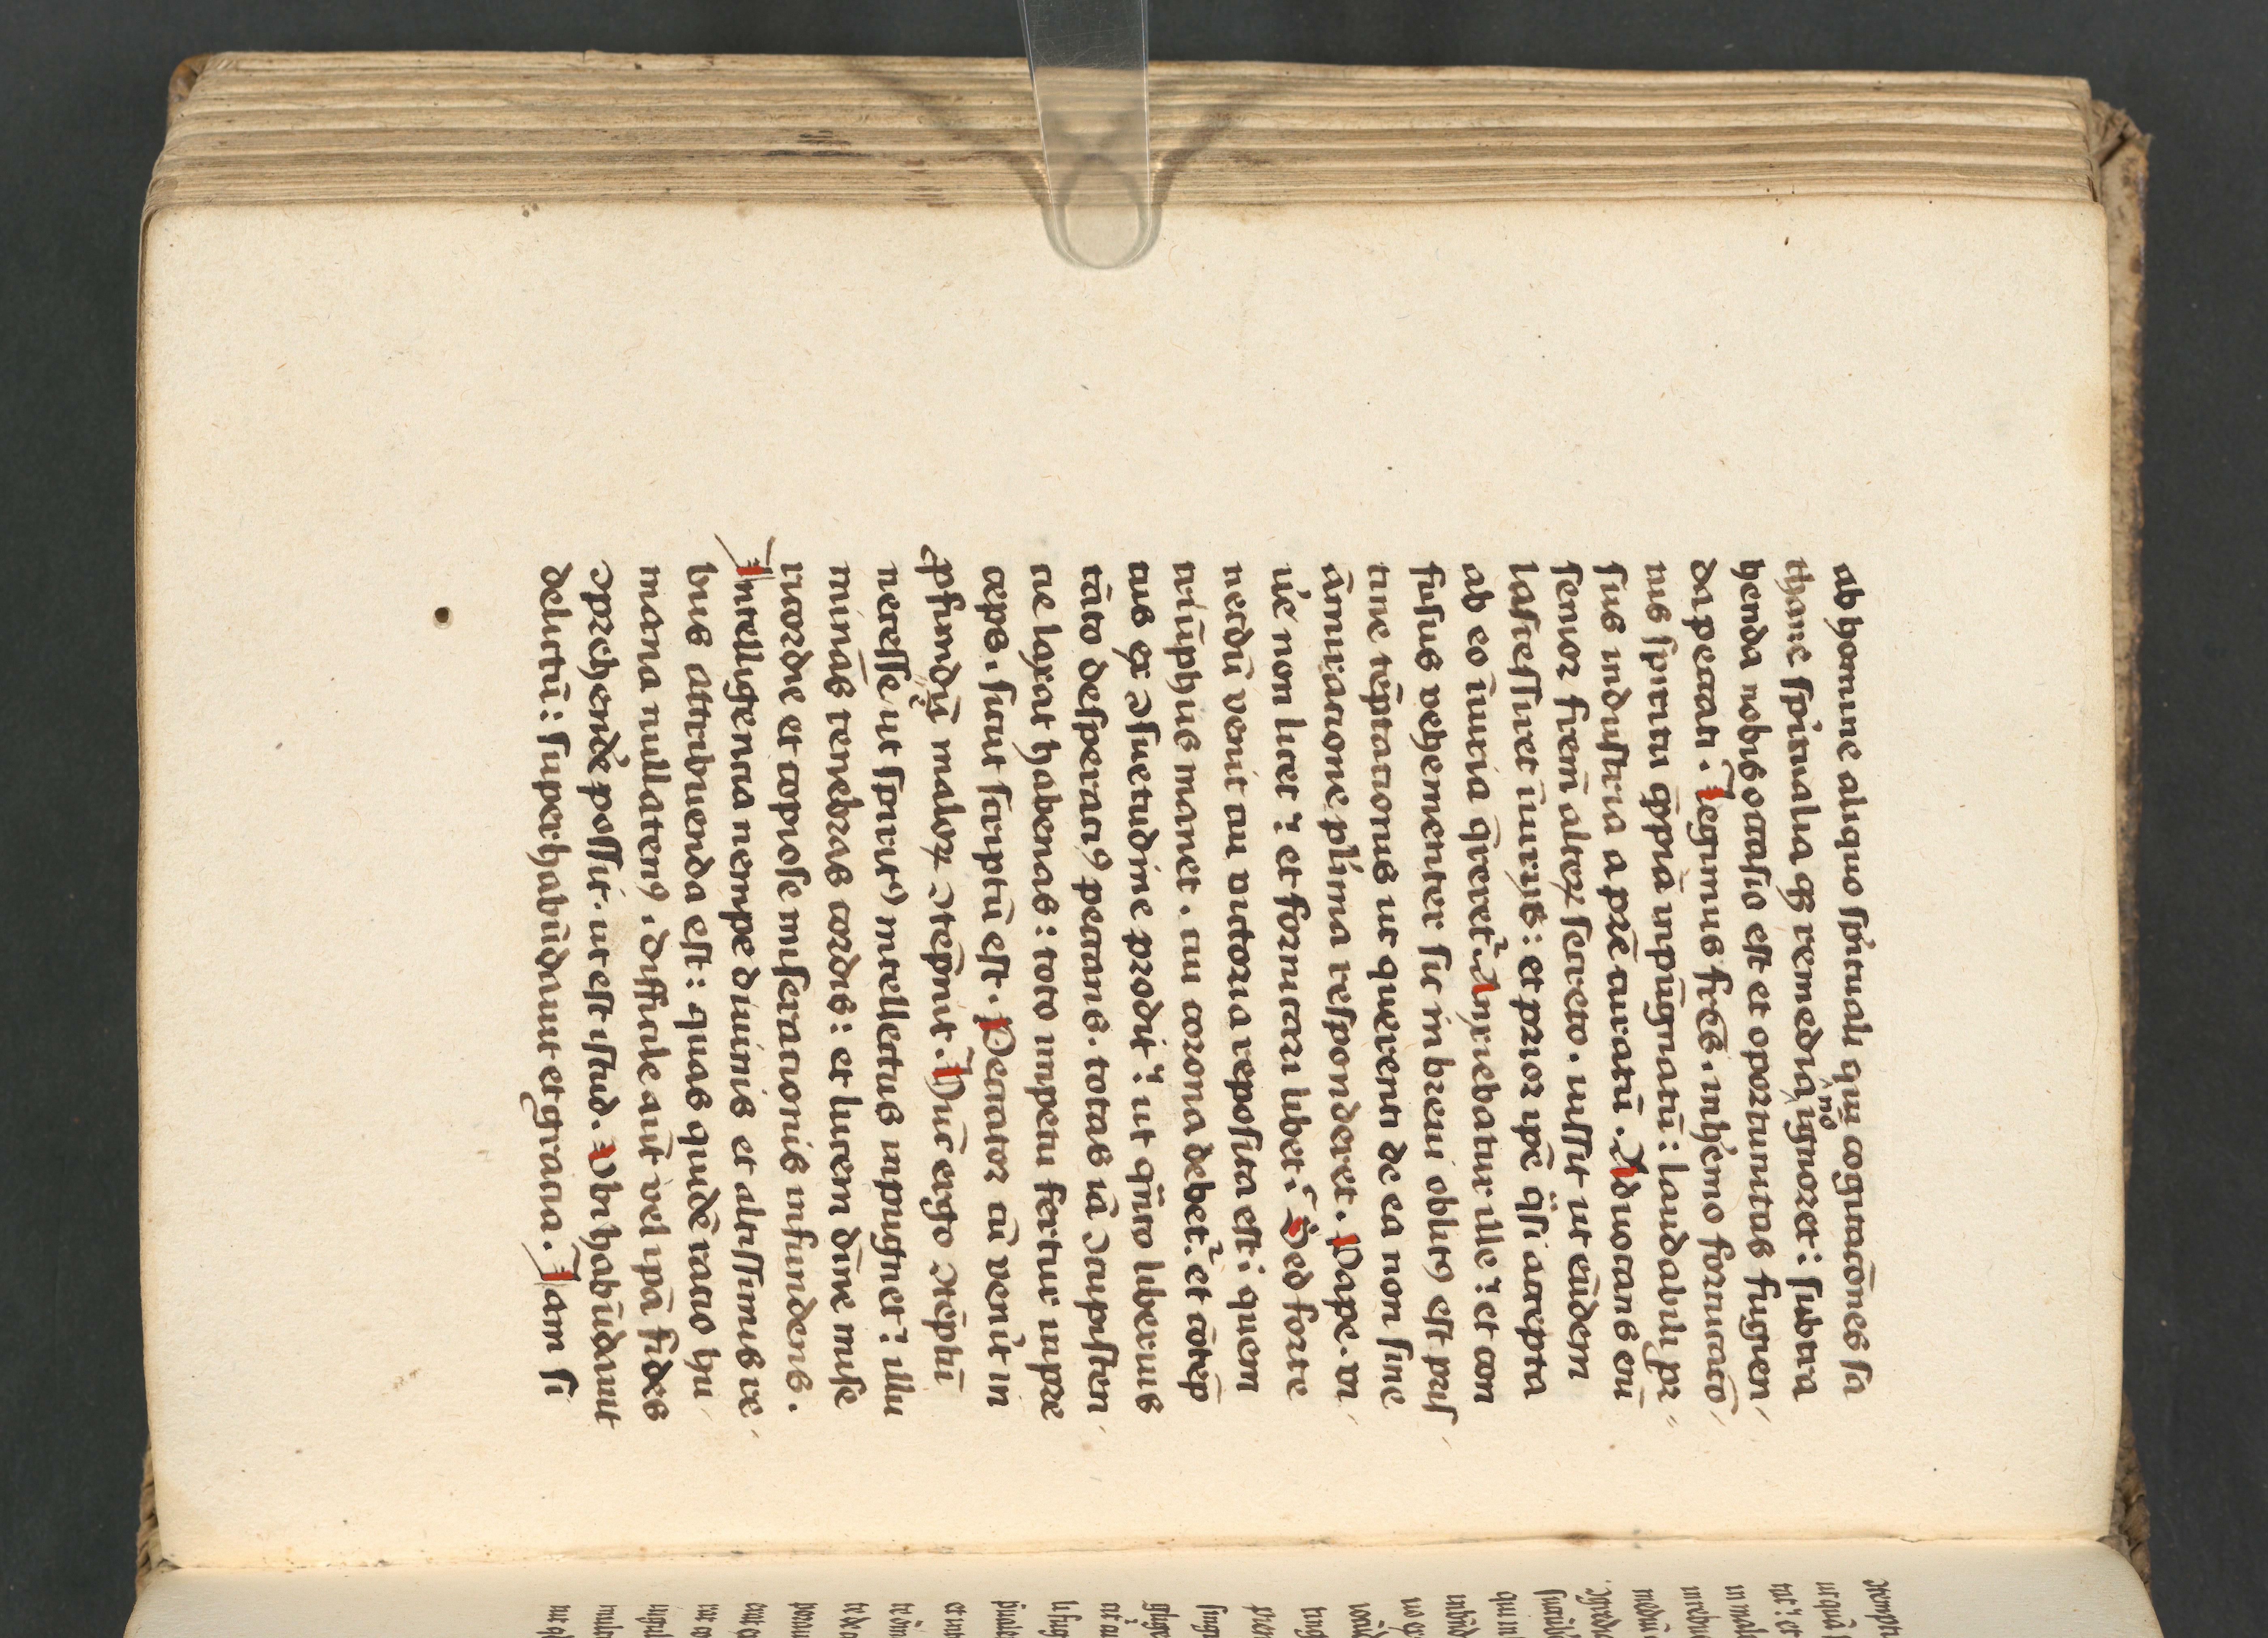 ab homine aliquo sp̄ituali qui cogitac̄ones sa
thane sp̄iritualiaqꝫ remedia nō ignoret: subtra
henda nobis occasio est et oportunitas fugien
da peccati. Legimus fr̄es. in hēmo fornicac̄o
nis spiritu qp̄iā inpūgnatū: laudabili pr
sus industria a prē curatū. Aduocans em̄
senior frem̄ alteꝝ secreto. iussit ut eūdem
lascesseret iniurijs: et prior ip̄e q̄si accepta
ab eo iniuria q̄reret. Angebatur ille: et con
fusus vehementer sic in breui oblitꝰ est pris
tine tēptacionis ut querenti de ea non sine
am̄iracione pl'ima responderet. Pape. vi
uē non licet: et fornicari libet: Sed forte
necdū venit cui victoria reposita est: quem
triūphus manet. cui corona debet̉. et cōtēp
tus ex ꝯsuetudine prodit: ut q̄nto liberius
tāto desperatiꝰ peccans. totas iā ꝯcupiscen
cie laxat habenas: toto impetu fertur in pre
ceps. sicut scriptū est. Peccator cū venit in
ꝓfundū maloꝝ ꝯtēpnit. Huic ergo ꝯtēptū
necesse ut spiritꝰ intellectus inpugnet: illu
minās tenebras cordis: et lucem diuine mise
ricordie et copiose miseracionis infundens.
Intelligencia nempe diuinis et altissimus re
bus attribuenda est: quas quidē racio hu
mana nullatenꝰ. difficile aut̄ vel ip̄a fides
ꝯprehendē possit. ut est istud. Vbi habūdauit
delictū: superhabūdauit et gracia. Iam si